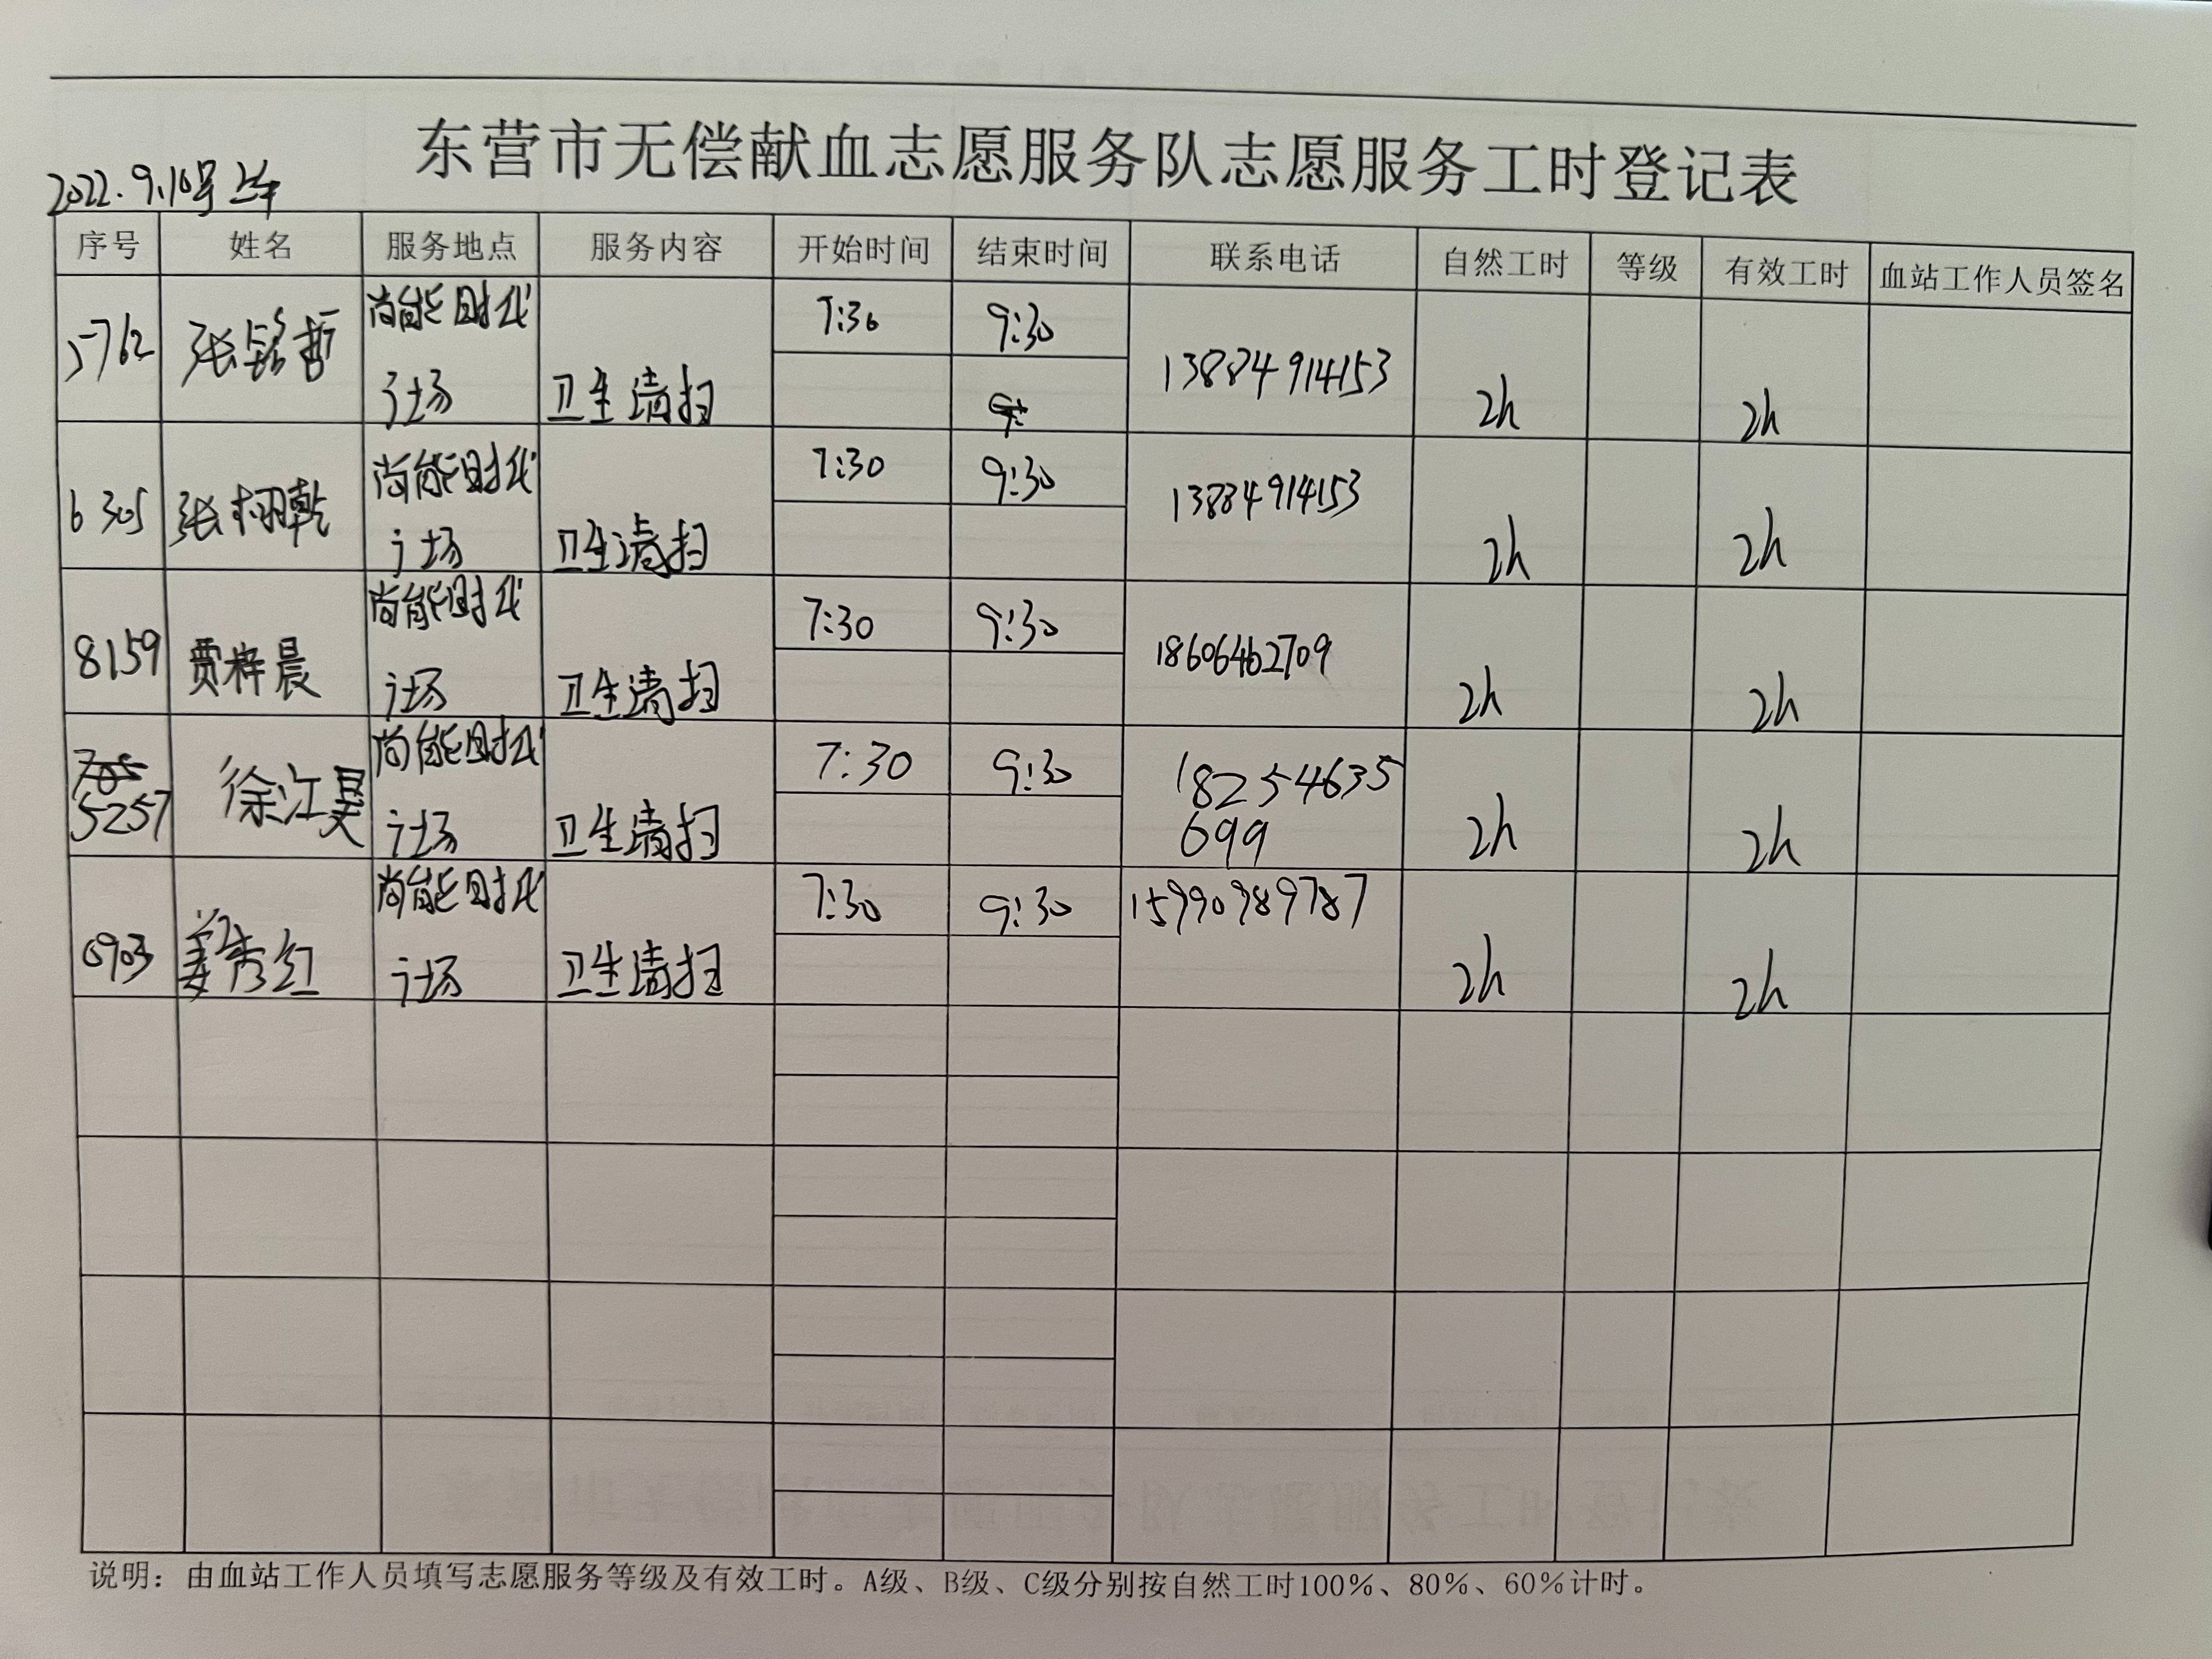 东营市无偿献血志愿服务队志愿服务工时登记表
2022.9.10号上午
序号 姓名 服务地点 服务内容 开始时间 结束时间 联系电话 自然工时 等级 有效工时 血站工作人员签名
5762 张铭哲 尚能时代广场 卫生清扫 7:30 9:30 13884914153 2h 2h
6305 张栩乾 尚能时代广场 卫生清扫 7:30 9:30 13884914153 2h 2h
8159 贾梓晨 尚能时代广场 卫生清扫 7:30 9:30 18606462709 2h 2h
5257 徐江昊 尚能时代广场 卫生清扫 7:30 9:30 18254635699 2h 2h
姜秀红 尚能时代广场 卫生清扫 7:30 9:30 2h 2h
说明：由血站工作人员填写志愿服务等级及有效工时。A级、B级、C级分别按自然工时100%、80%、60%计时。